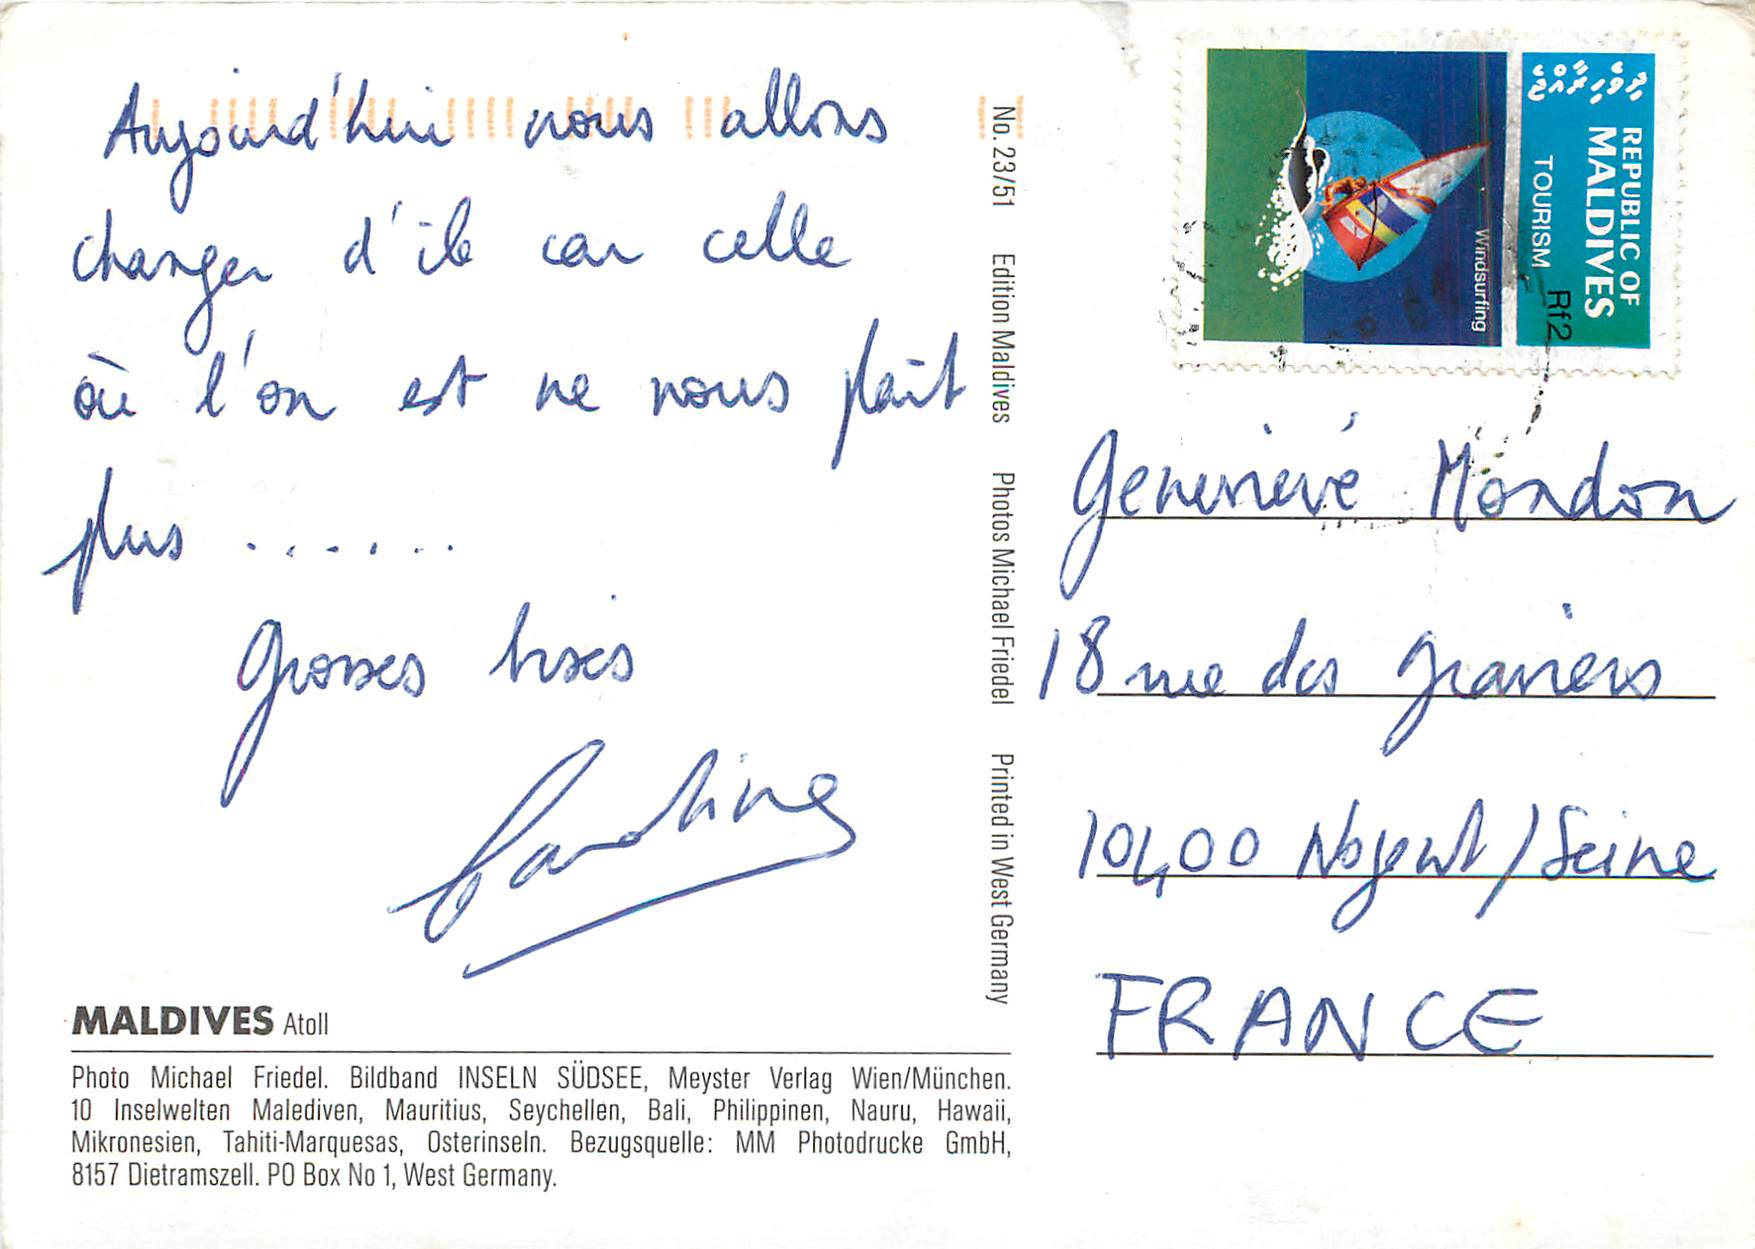 Aujourd'hui nous allons
changer d'île car celle
où l'on est ne nous plaît
plus .......
Grosses bises
Caroline
MALDIVES Atoll
Photo Michael Friedel. Bildband INSELN SÜDSEE, Meyster Verlag Wien/München.
10 Inselwelten Malediven, Mauritius, Seychellen, Bali, Philippinen, Nauru, Hawaii,
Mikronesien, Tahiti-Marquesas, Osterinseln. Bezugsquelle: MM Photodrucke GmbH,
8157 Dietramszell. PO Box No 1, West Germany.
No. 23/51 Edition Maldives Photos Michael Friedel Printed in West Germany
REPUBLIC OF
MALDIVES
TOURISM
Rf2
Windsurfing
Genevievé Mondon
18 rue des graviers
10400 Nogent/Seine
FRANCE